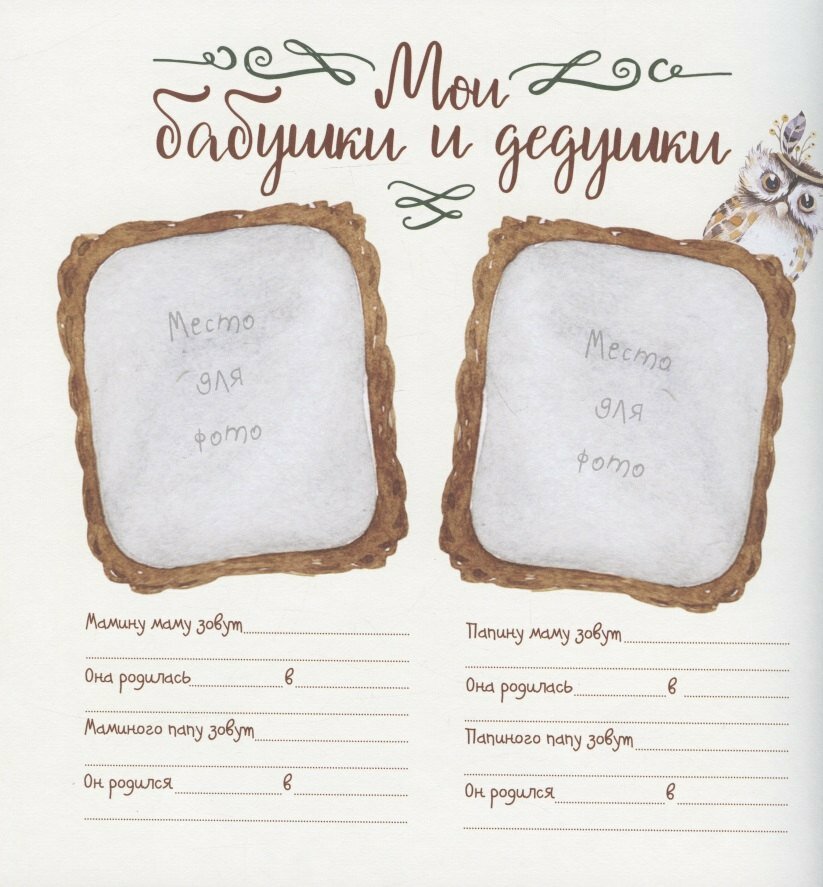 Мои
бабушки и дедушки
Место
для
фото
Место
для
фото
Мамину маму зовут
Она родилась в
Маминого папу зовут
Он родился в
Папину маму зовут
Она родилась в
Папиного папу зовут
Он родился в